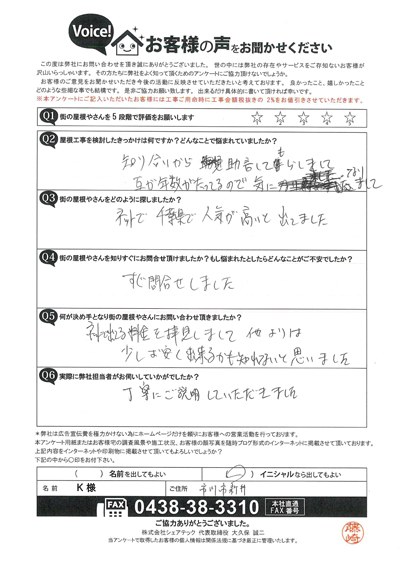 Voice! お客様の声をお聞かせください
この度は弊社にお問い合わせを頂き誠にありがとうございました。世の中には弊社の存在やサービスをご存知ないお客様が
沢山いらっしゃいます。その方たちに弊社をよく知って頂くためのアンケートにご協力頂けないでしょうか。
お客様のご意見をお聞かせいただき今後の活動に反映させていただきたいと考えております。良かったこと、嬉しかったこと
どのような些細な事でも結構です。是非ご協力お願い致します。出来るだけ具体的に書いて頂ければ幸いです。
※本アンケートにご記入いただいたお客様には工事ご用命時に工事金額税抜きの 2%をお値引きさせていただきます。
Q1 街の屋根やさんを5段階で評価をお願いします ☆ ☆ ☆ ☆ ☆
Q2 屋根工事を検討したきっかけは何ですか?どんなことで悩まれていましたか?
知り合いから 助言しても らいまして
瓦が年数がたってるので 気になっており まして
Q3 街の屋根やさんをどのように探しましたか?
ネットで 千葉県で 人気が高いと 出てました
Q4 街の屋根やさんを知りすぐにお問合せ頂けましたか?もし悩まれたとしたらどんなことがご不安でしたか?
すぐ問合せしました
Q5 何が決め手となり街の屋根やさんにお問い合わせ頂きましたか?
料金を拝見しまして 他よりは
少しは安く出来るかも知れないと思いました
Q6 実際に弊社担当者がお伺いしていかがでしたか?
丁寧にご説明していただきました
※弊社は広告宣伝費を極力かけない為にホームページだけを頼りにお客様への営業活動を行っております。
本アンケート用紙またはお客様宅の調査風景や施工状況、お客様の顔写真を随時ブログ形式のインターネットに掲載させて頂いております。
上記内容をインターネットや印刷物に掲載させて頂いてもよろしいでしょうか?
下記の中から〇印をお付下さい。
( ) 名前を出してもよい (〇) イニシャルなら出してもよい
名前 K 様 ご住所 市川市新井
FAX 0438-38-3310 本社直通 FAX番号
ご協力ありがとうございました。
株式会社シェアテック 代表取締役 大久保 誠二
当アンケートで取得したお客様の個人情報は関係法規に基づき厳正に管理いたします。
藤崎